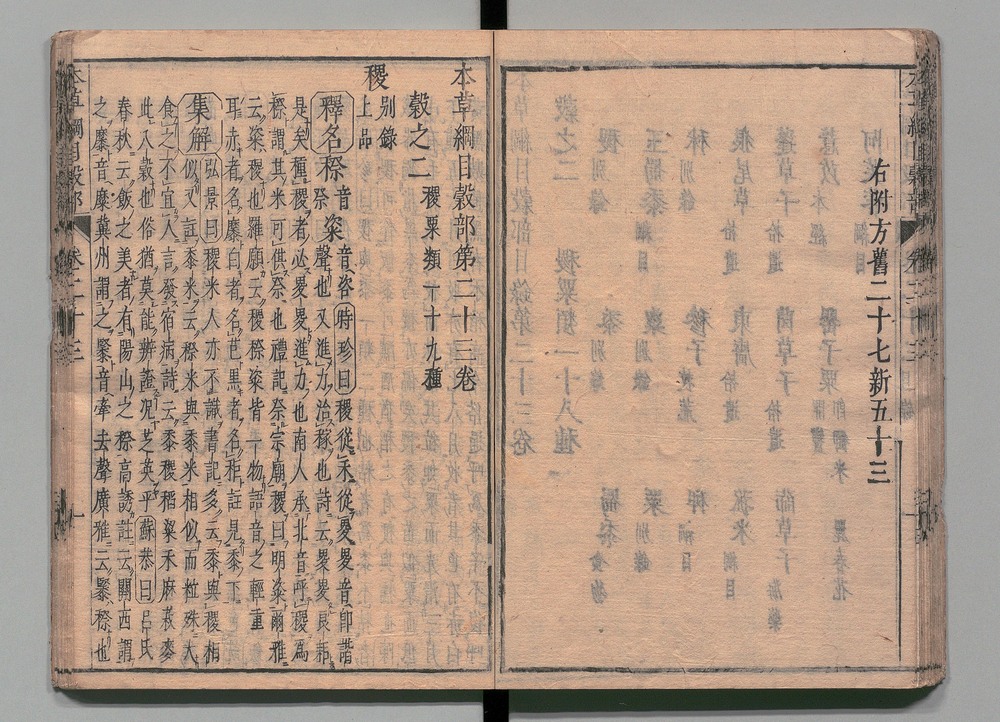 右附方舊二十七新五十三
本草綱目穀部第二十三卷
穀之二 稷粟類一十九種
稷 別錄上品
釋名 穄 音祭 粢 音咨 時珍曰 稷從禾從畟畟音即諧
聲也又進力治稼也詩云畟畟良耜
是矣種稷者必畟畟進力也南人承北音呼稷爲
穄謂其米可供祭也禮記祭宗廟稷曰明粢爾雅
云粢稷也羅願云稷穄粢皆一物語音之輕重
耳赤者名穈白者名芑黑者名秬註見黍下
集解 弘景曰 稷米人亦不識書記多云黍與稷相
似又註黍米云穄米與黍米相似而粒殊大
食之不宜人言發宿病詩云黍稷稻粱禾麻菽麥
此八穀也俗猶莫能辨證況芝英乎 蘇恭曰 呂氏
春秋云飯之美者有陽山之穄高誘註云關西謂
之穈音糜冀州謂之䅣音牽去聲廣雅云䅣穄也
本草綱目穀部 卷二十三 一